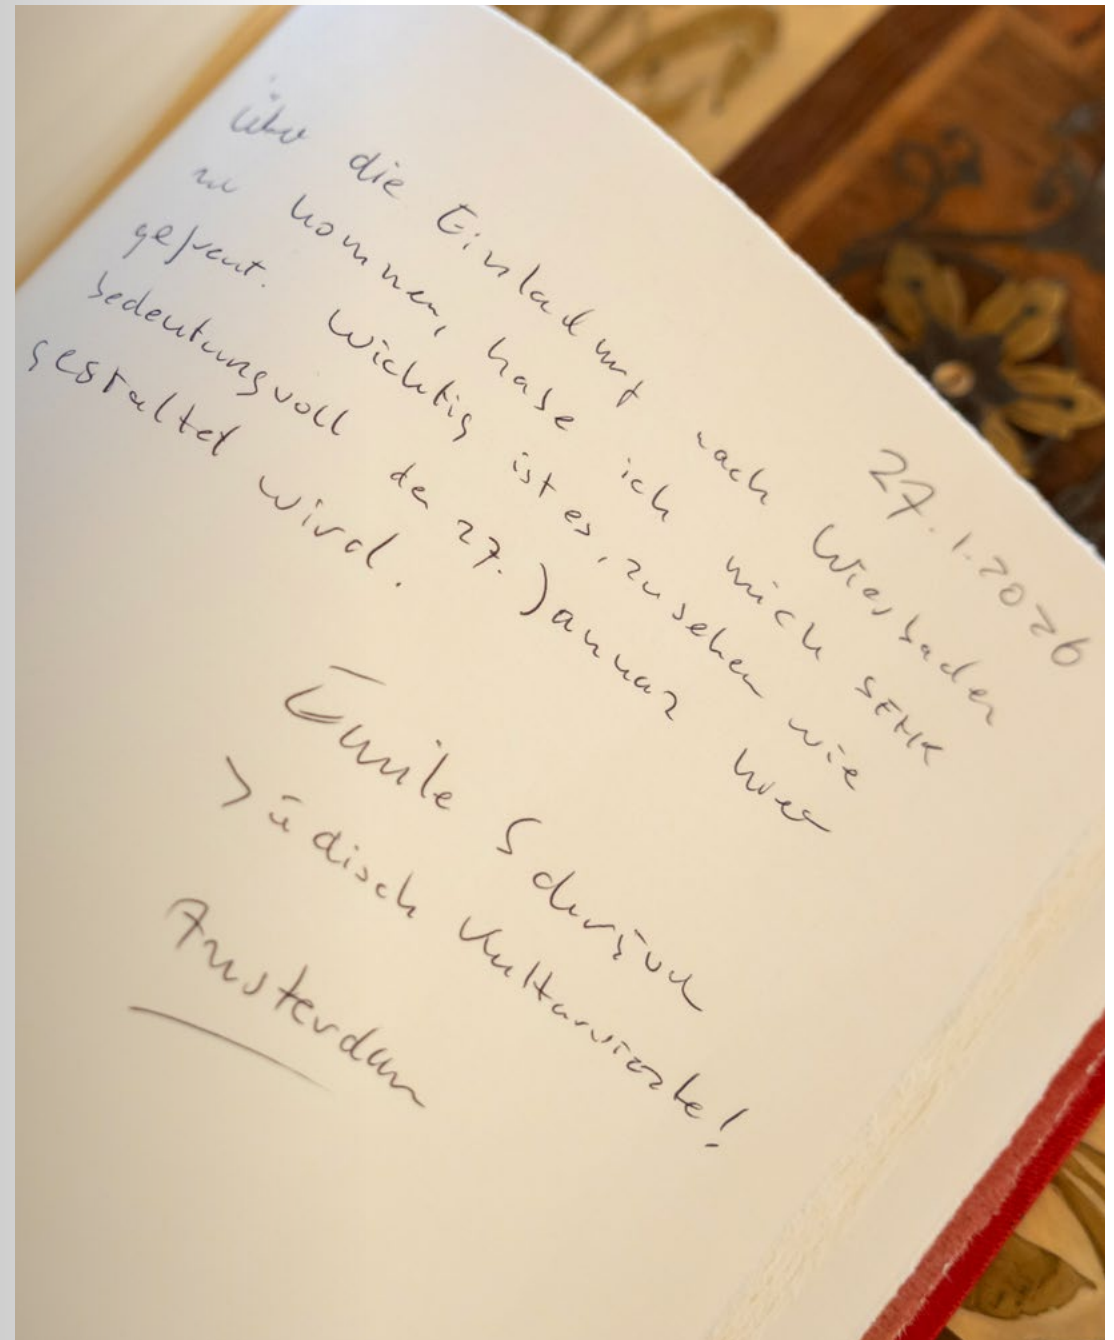 27.1.2026
Über die Einladung nach Wiesbaden
zu kommen, habe ich mich SEHR
gefreut. Wichtig ist es, zu sehen wie
bedeutungsvoll der 27. Januar hier
gestaltet wird.
Emile Schrijver
Jüdisch Kulturviertel
Amsterdam